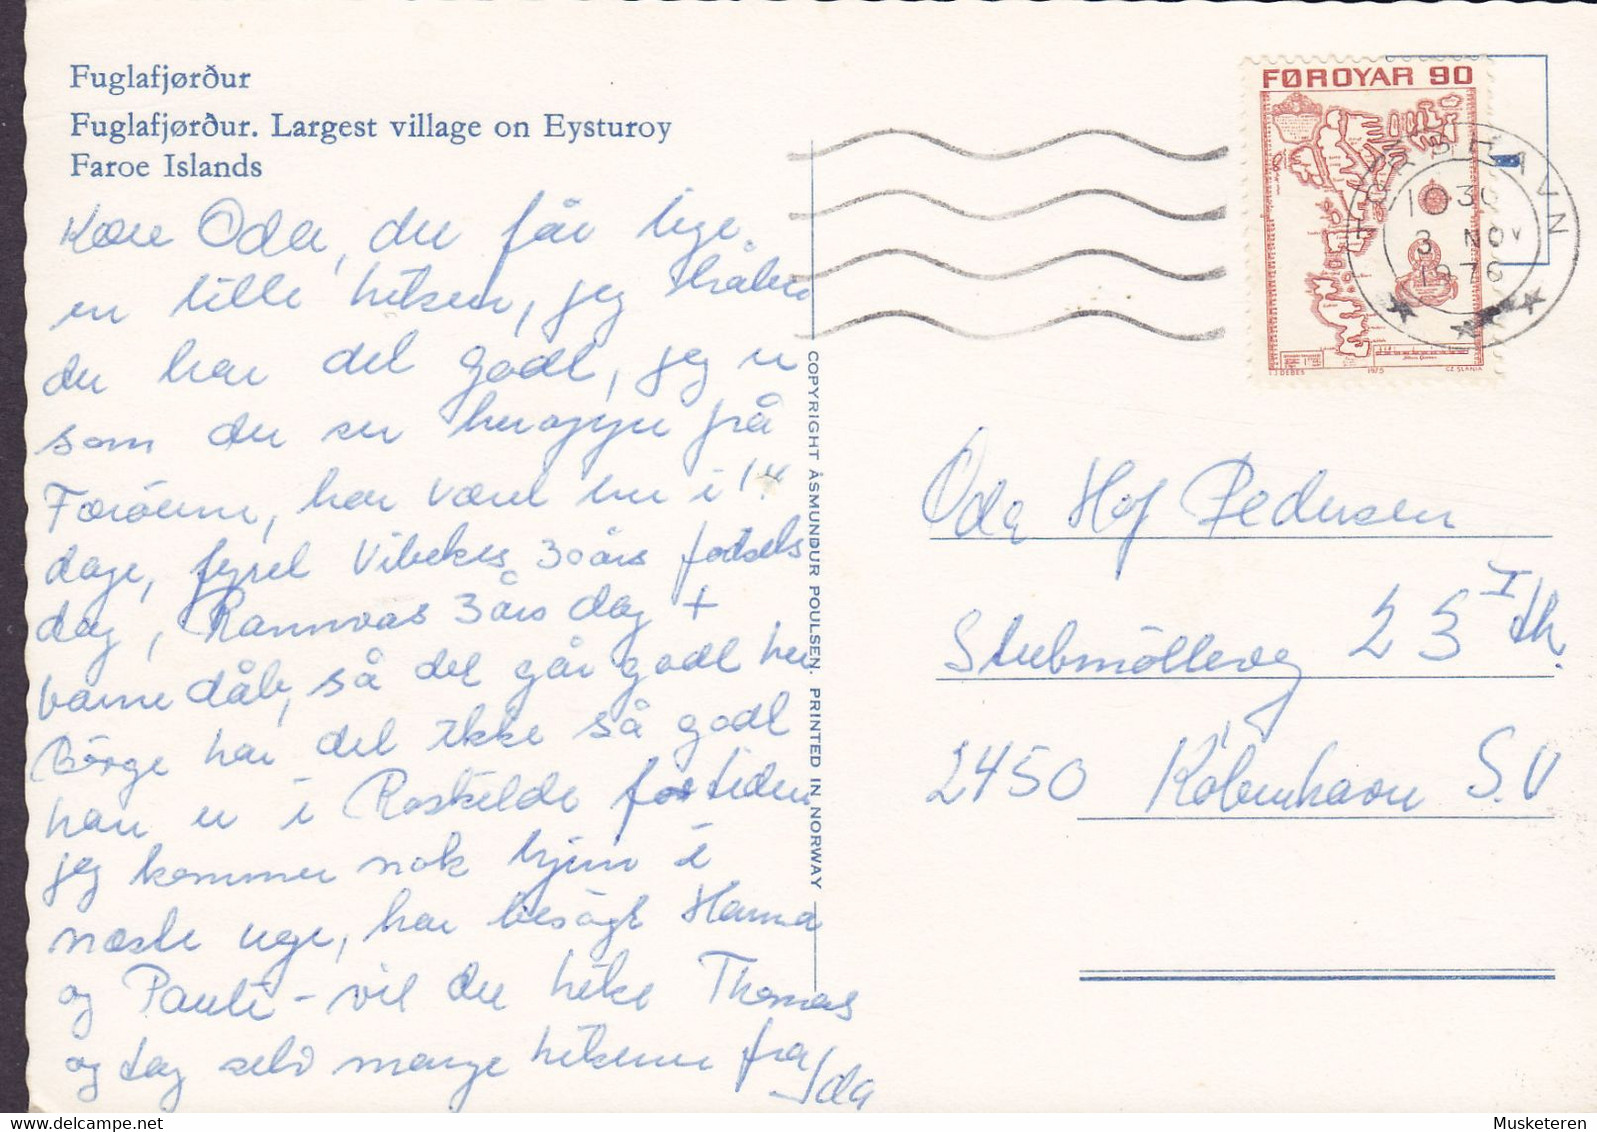 Fuglafjørður
Fuglafjørður. Largest village on Eysturoy
Faroe Islands
Kære Oda, du får lige
en lille hilsen, jeg håber
du har det godt, jeg er
som du ser heroppe på
Færöerne, har været her i 14
dage, fejret Vibekes 30 års fødsels
dag, Rannvas 3 års dag +
barnedåb, så det går godt her
Börge har det ikke så godt
han er i Roskilde for tiden
jeg kommer nok hjem i
næste uge, har besögt Hanna
og Pauli - vil du hilse Thomas
og dag selv mange hilsener fra
Ida
COPYRIGHT ÅSMUNDUR POULSEN. PRINTED IN NORWAY
FØROYAR 90
L J DEBES 1975 CZ. SLANIA
TÓRSHAVN
1030
3 NOV
1976
Oda Hof Pedersen
Stubmöllevej 23 I th.
2450 København S.V
Musketeren